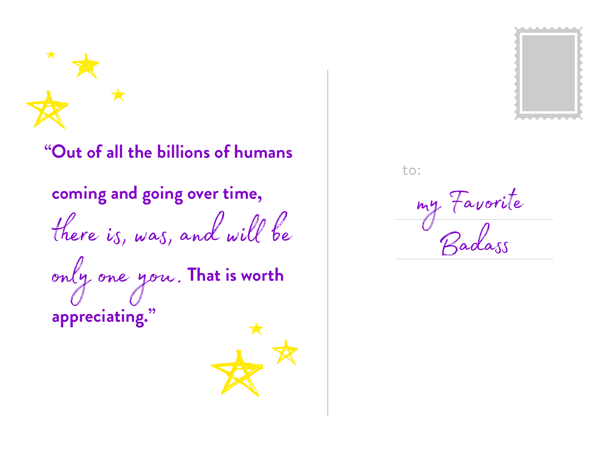 “Out of all the billions of humans
coming and going over time,
there is, was, and will be
only one you. That is worth
appreciating.”
to:
my Favorite
Badass